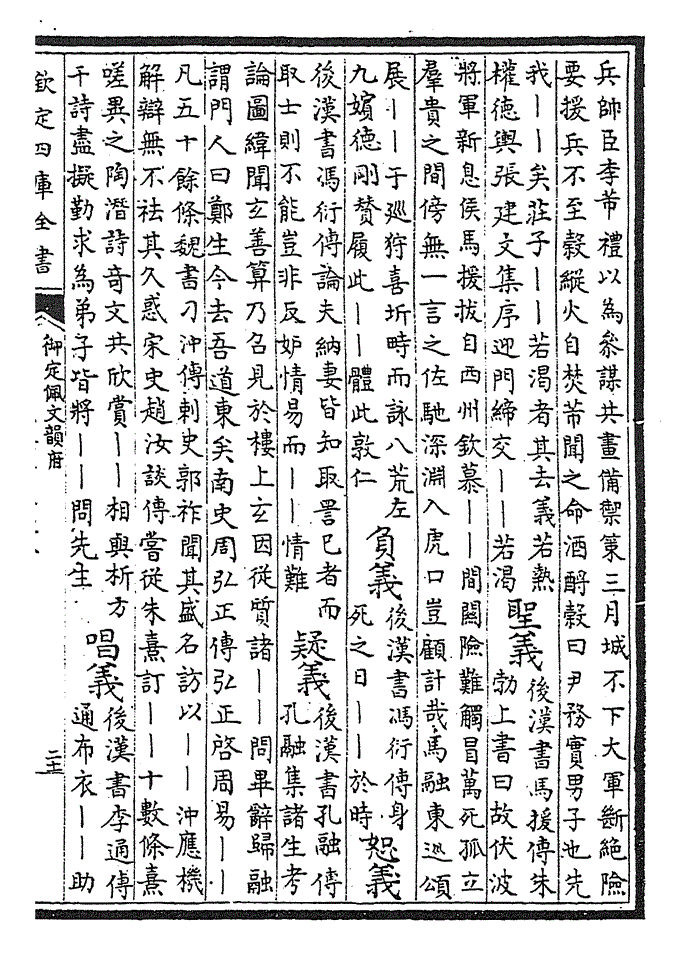 兵帥臣李芾禮以為參謀共畫備禦策三月城不下大軍斷絶險
要援兵不至穀縱火自焚芾聞之命酒酹穀曰尹務實男子也先
我——矣莊子——若渴者其去義若熱
權德輿張建文集序迎門締交——若渴
聖義
後漢書馬援傳朱
勃上書曰故伏波
將軍新息侯馬援拔自西州欽慕——間關險難觸冒萬死孤立
羣貴之間傍無一言之佐馳深淵入虎口豈顧計哉馬融東巡頌
展——于廵狩喜圻時而詠八荒左
九嬪德剛贊履此——體此敦仁
負義
後漢書馮衍傳身
死之日——於時
恕義
後漢書馮衍傳論夫納妻皆知取詈己者而
取士則不能豈非反妒情易而——情難
疑義
後漢書孔融傳
孔融集諸生考
論圖緯聞玄善算乃召見於樓上玄因從質諸——問畢辭歸融
謂門人曰鄭生今去吾道東矣南史周弘正傳弘正啓周易——
凡五十餘條魏書刁沖傳刺史郭祚聞其盛名訪以——沖應機
解辯無不祛其久惑宋史趙汝談傳嘗從朱熹訂——十數條熹
嗟異之陶潛詩奇文共欣賞——相與析方
干詩盡擬勤求為弟子皆將——問先生
唱義
後漢書李通傳
通布衣——助
欽定四庫全書
御定佩文韻府